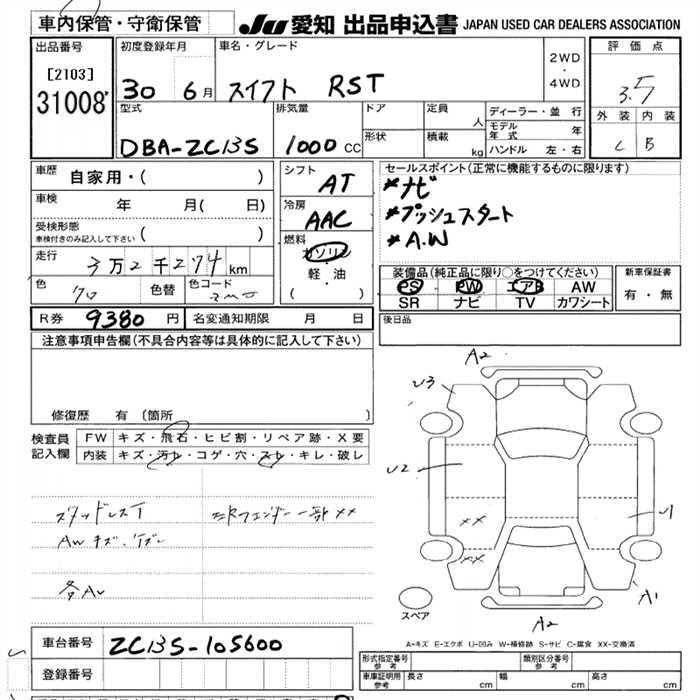 車内保管・守衛保管
JU 愛知 出品申込書 JAPAN USED CAR DEALERS ASSOCIATION
出品番号
[2103]
31008
初度登録年月
30 6月
車名・グレード
スイフト RST
2WD
・
4WD
評価点
3.5
型式
DBA-ZC13S
排気量
1000 CC
ドア
形状
定員
人
積載
kg
ディーラー・並行
モデル年式 年
ハンドル 左・右
外装 内装
C B
車歴
自家用・( )
車検
年 月( 日)
受検形態
車検付きのみ記入して下さい ( )
走行
3万2千274km
色
クロ
色替
色コード
シフト
AT
冷房
AAC
燃料
ガソリン
・
軽・油
( )
セールスポイント(正常に機能するものに限ります)
*ナビ
*プッシュスタート
*A.W
装備品(純正品に限り○をつけてください)
PS PW エアB AW
SR ナビ TV カワシート
新車保証書
有・無
R券 9380円 名変通知期限 月 日
後日品
注意事項申告欄(不具合内容等は具体的に記入して下さい)
修復歴 有(箇所
検査員
記入欄
FW キズ・飛石・ヒビ割・リペア跡・X要
内装 キズ・汚れ・コゲ・穴・スレ・キレ・破レ
スタッドレスT
AWキズ、
左Rフェンダー一部XX
各A
A2
U3
U2
XX
XX
U1
A1
A2
スペア
A-キズ E-エクボ U-凹み W-補修跡 S-サビ C-腐食 XX-交換済
車台番号 ZC13S-105600
登録番号
形式指定番号
参考
類別区分番号
参考
車庫証明用
参考
長さ cm 幅 cm 高さ cm